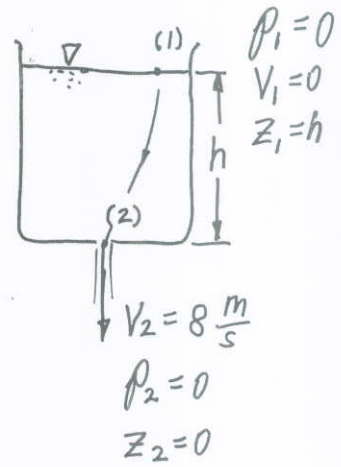 (1)
p₁ = 0
V₁ = 0
z₁ = h
h
(2)
V₂ = 8 m/s
p₂ = 0
z₂ = 0